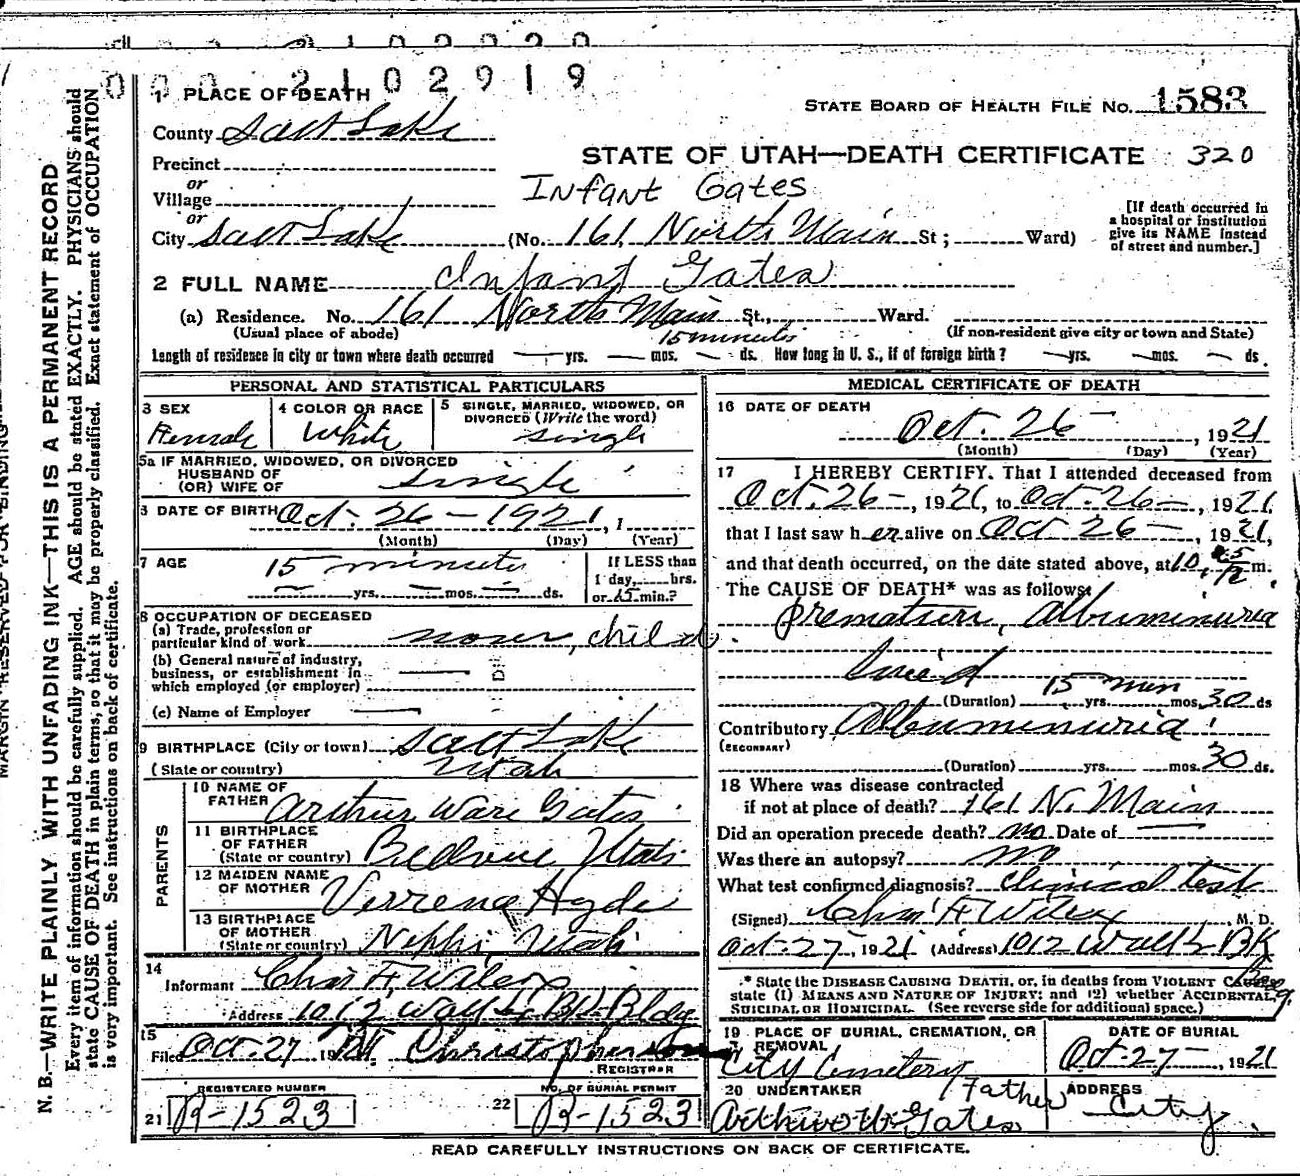 0002102919
1 PLACE OF DEATH
STATE BOARD OF HEALTH FILE NO. 1583
County Salt Lake
Precinct
STATE OF UTAH—DEATH CERTIFICATE 320
or
Village
Infant Gates
or
City Salt Lake (No. 161 North Main St; Ward)
[If death occurred in
a hospital or institution
give its NAME instead
of street and number.]
2 FULL NAME Infant Gates
(a) Residence. No. 161 North Main St., Ward.
(Usual place of abode) (If non-resident give city or town and State)
15 minutes
Length of residence in city or town where death occurred — yrs. — mos. — ds. How long in U. S., if of foreign birth? — yrs. — mos. — ds.
PERSONAL AND STATISTICAL PARTICULARS
3 SEX
Female
4 COLOR OR RACE
White
5 SINGLE, MARRIED, WIDOWED, OR
DIVORCED (Write the word)
Single
5a IF MARRIED, WIDOWED, OR DIVORCED
HUSBAND OF
(OR) WIFE OF Single
6 DATE OF BIRTH Oct. 26 - 1921, 1
(Month) (Day) (Year)
7 AGE 15 minutes
— yrs. — mos. — ds.
If LESS than
1 day, hrs.
or 15 min.?
8 OCCUPATION OF DECEASED
(a) Trade, profession or
particular kind of work none, child.
(b) General nature of industry,
business, or establishment in
which employed (or employer) —
(c) Name of Employer —
9 BIRTHPLACE (City or town) Salt Lake
(State or country) Utah
PARENTS
10 NAME OF
FATHER Arthur Ware Gates
11 BIRTHPLACE
OF FATHER
(State or country) Utah
12 MAIDEN NAME
OF MOTHER Verrena Hyde
13 BIRTHPLACE
OF MOTHER
(State or country) Nephi, Utah
14
Informant Chas F. Wilcox
Address 1012 Walker Bk. Bldg
15
Filed Oct-27 1921
REGISTRAR
REGISTERED NUMBER
21 R-1523
NO. OF BURIAL PERMIT
22 R-1523
MEDICAL CERTIFICATE OF DEATH
16 DATE OF DEATH
Oct. 26 - , 1921
(Month) (Day) (Year)
17 I HEREBY CERTIFY. That I attended deceased from
Oct. 26 - , 1921, to Oct. 26 - , 1921,
that I last saw h er alive on Oct 26 - , 1921,
and that death occurred, on the date stated above, at 10 m.
The CAUSE OF DEATH* was as follows:
premature, albuminuria
15 min
(Duration) yrs. mos. 30 ds
Contributory Albuminuria
(SECONDARY)
(Duration) yrs. mos. 30 ds.
18 Where was disease contracted
if not at place of death? 161 N. Main
Did an operation precede death? no Date of —
Was there an autopsy? no
What test confirmed diagnosis? clinical test
(Signed) Chas F. Wilcox, M. D.
Oct-27, 1921 (Address) 1012 Walk'r BK
Bldg.
* State the DISEASE CAUSING DEATH, or, in deaths from VIOLENT CAUSES,
state (1) MEANS AND NATURE OF INJURY; and (2) whether ACCIDENTAL,
SUICIDAL OR HOMICIDAL. (See reverse side for additional space.)
19 PLACE OF BURIAL, CREMATION, OR
REMOVAL
City Cemetery
DATE OF BURIAL
Oct-27-, 1921
20 UNDERTAKER Father
Arthur W. Gates
ADDRESS
City
READ CAREFULLY INSTRUCTIONS ON BACK OF CERTIFICATE.
MARGIN RESERVED FOR BINDING
N. B.—WRITE PLAINLY WITH UNFADING INK—THIS IS A PERMANENT RECORD
Every item of information should be carefully supplied. AGE should be stated EXACTLY. PHYSICIANS should
state CAUSE OF DEATH in plain terms, so that it may be properly classified. Exact statement of OCCUPATION
is very important. See instructions on back of certificate.